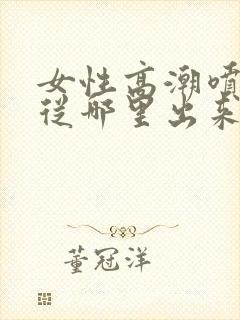 女性高潮喷
从哪里出来
董冠洋